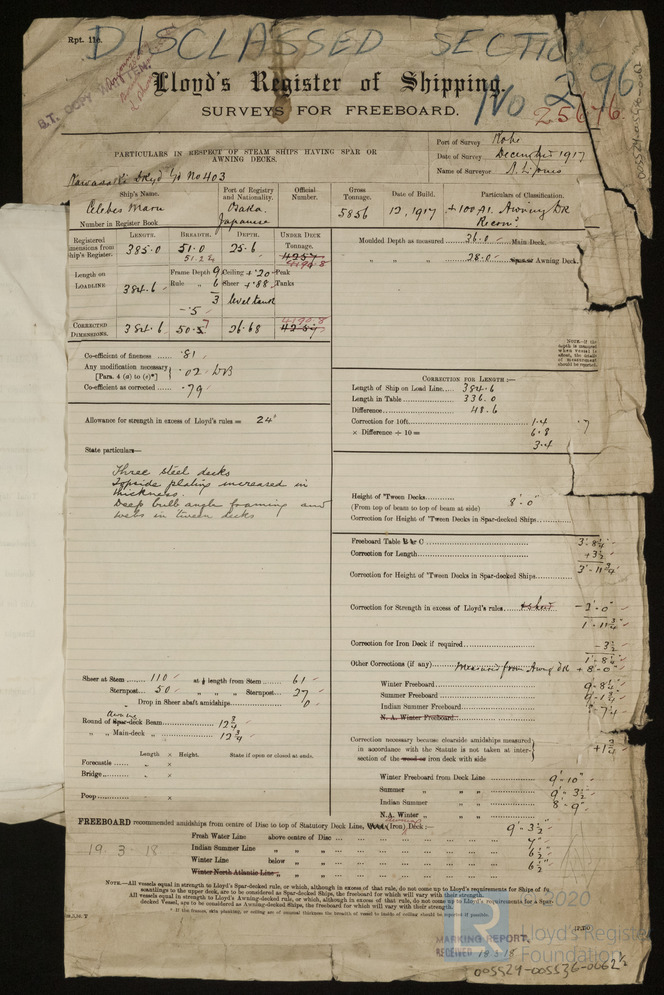 Rpt. 11c.
DISCLASSED SECTION
B.T. COPY WRITTEN.
Lloyd's Register of Shipping.
No 296
SURVEYS FOR FREEBOARD.
25676.
PARTICULARS IN RESPECT OF STEAM SHIPS HAVING SPAR OR
AWNING DECKS.
Port of Survey Kobe
Date of Survey December 1917
Name of Surveyor
Kawasaki DkYd Yd No 403
Ship's Name. Port of Registry and Nationality. Official Number. Gross Tonnage. Date of Build. Particulars of Classification.
Celebes Maru Osaka, Japanese 5856 12, 1917 +100A1. Awning Dk
Number in Register Book
LENGTH. BREADTH. DEPTH. UNDER DECK Tonnage.
Registered Dimensions from Ship's Register. 385.0 51.0 25.6 4257
51.2 4190.8
Moulded Depth as measured 36.0 Main Deck.
" " " 28.0 Spar or Awning Deck.
Length on LOADLINE 384.6
Frame Depth 9 Ceiling + .20 Peak
Rule " 6 Sheer + .88 Tanks
3 level tank
- .5
4190.8
CORRECTED DIMENSIONS. 384.6 50.5 26.68 4257
Co-efficient of fineness ...... .81
Any modification necessary [Para. 4 (a) to (e)*] .02 DB
Co-efficient as corrected ...... .79
CORRECTION FOR LENGTH:—
Length of Ship on Load Line..... 384.6
Length in Table ..... 336.0
Difference ..... 48.6
Correction for 10ft. ..... 1.4 .7
× Difference ÷ 10 = ..... 6.8
3.4
Allowance for strength in excess of Lloyd's rules = 24"
State particulars—
Three steel decks
Topside plating increased in
thickness.
Deep bulb angle framing and
webs in tween decks
Height of 'Tween Decks............ 8'-0"
(From top of beam to top of beam at side)
Correction for Height of 'Tween Decks in Spar-decked Ships......
Freeboard Table B or C ...... 3'-8¼
Correction for Length...... +3½
3'-11¾
Correction for Height of 'Tween Decks in Spar-decked Ships......
Correction for Strength in excess of Lloyd's rules - 2'-0"
1'-11¾
Correction for Iron Deck if required...... - 3½
1'-8¼
Other Corrections (if any) Measured from Awng Dk + 8'-0"
Sheer at Stem ...... 110 at ⅛ length from Stem ...... 61
Sternpost... 50 " " " Sternpost... 27
Drop in Sheer abaft amidships... 0
Awning
Round of Spar-deck Beam...... 12¾
" " Main-deck "...... 12¾
Winter Freeboard ...... 9-8¼
Summer Freeboard ...... 9-1¾
Indian Summer Freeboard...... 8-7¼
N. A. Winter Freeboard......
Length × Height. State if open or closed at ends.
Forecastle ...... " ×
Bridge ...... " ×
Poop ...... " ×
Correction necessary because clearside amidships measured
in accordance with the Statute is not taken at inter-
section of the wood or iron deck with side
+1¾
Winter Freeboard from Deck Line ...... 9'-10"
Summer " " " ...... 9'-3½
Indian Summer " " ...... 8'-9"
N.A. Winter " "
FREEBOARD recommended amidships from centre of Disc to top of Statutory Deck Line, Wood (Iron) Deck:— 9'-3½
Fresh Water Line above centre of Disc ... 7"
19.3.18
Indian Summer Line " " ... 6½
Winter Line below " ... 6½
Winter North Atlantic Line " "
NOTE.—All vessels equal in strength to Lloyd's Spar-decked rule, or which, although in excess of that rule, do not come up to Lloyd's requirements for Ships of full
scantlings to the upper deck, are to be considered as Spar-decked Ships, the freeboard for which will vary with their strength.
All vessels equal in strength to Lloyd's Awning-decked rule, or which, although in excess of that rule, do not come up to Lloyd's requirements for a Spar-
decked Vessel, are to be considered as Awning-decked Ships, the freeboard for which will vary with their strength.
* If the frames, side plating, or ceiling are of unusual thickness the breadth of vessel to inside of ceiling should be reported if possible.
© 2020
Lloyd's Register
Foundation
MARKING REPORT.
RECEIVED 18.3.18
005529-005536-0062½